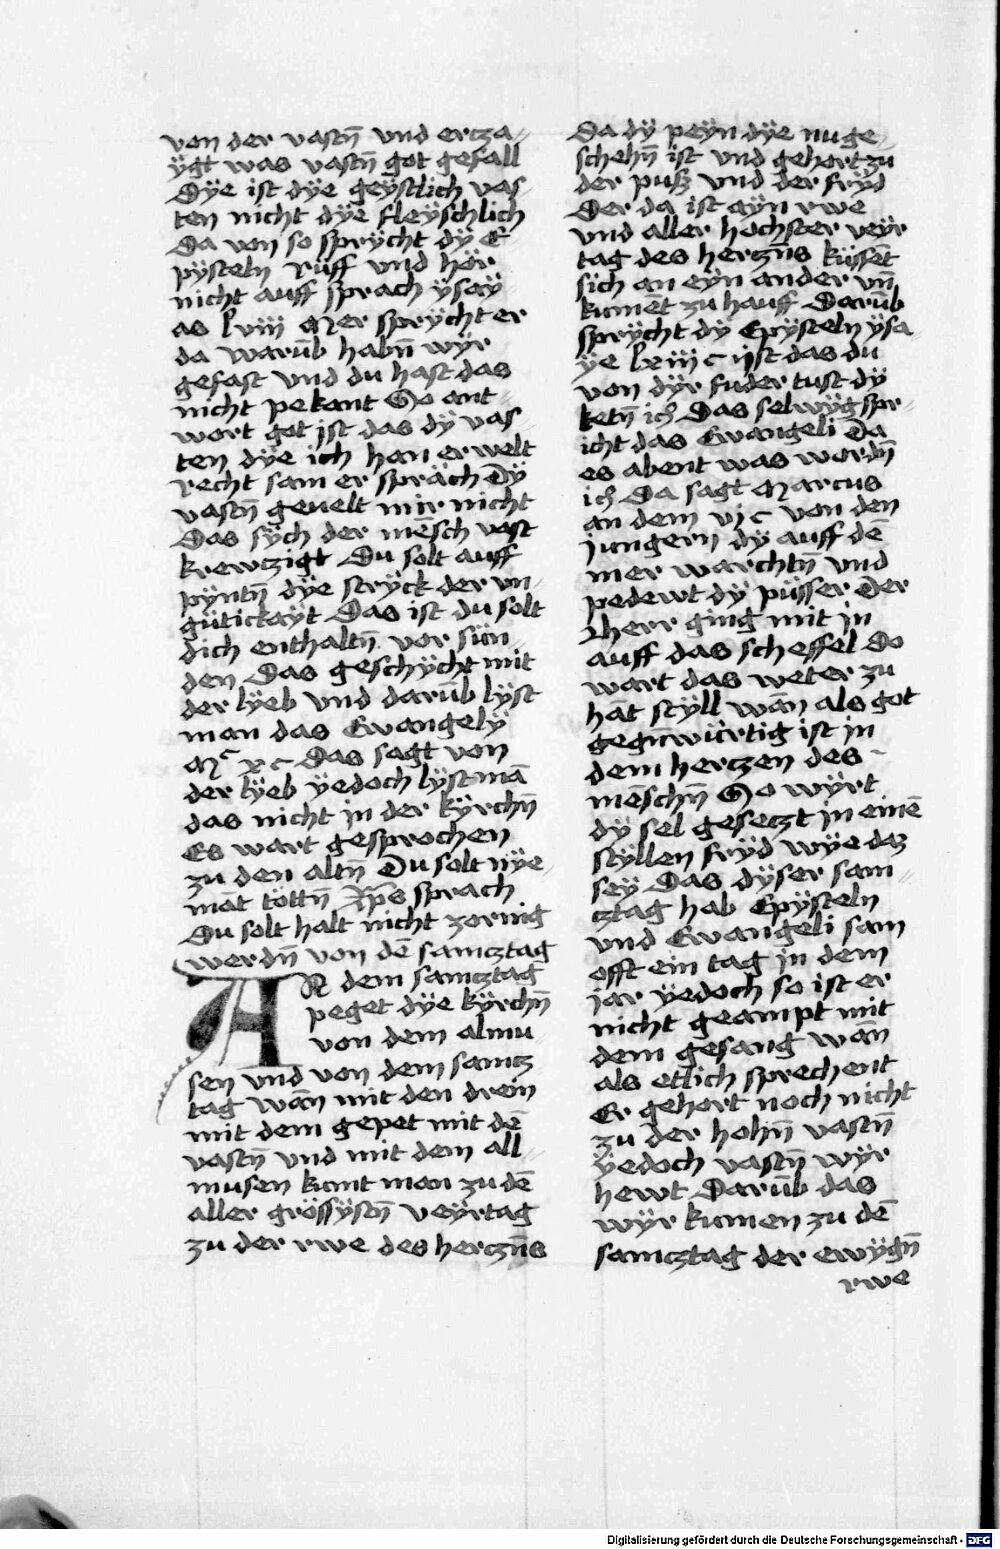 von der vastn̄ vnd ertza⸗
ÿgt was vastn̄ got gefall
Dÿe ist dÿe geÿstlich vas⸗
ten nicht dÿe fleÿschlich
Da von so sprÿcht dÿ E⸗
pÿsteln rüff vnd hör
nicht auff sprach ÿsaÿ⸗
as lviii Mer sprÿcht er
da warūb habn̄ wÿr
gefast vnd du hast das
nicht pekant So ant⸗
wort got jst das dÿ vas⸗
ten dÿe ich han erwelt
recht sam er spräch Dÿ
vastn̄ geuelt mir nicht
Das sÿch der mēsch vast
krewtzigt Du solt auff
pÿntn̄ dÿe strÿck der vn⸗
gütickaÿt Das ist du solt
dich enthaltn̄ vor sün⸗
den Das geschÿcht mit
der lÿeb vnd darūb lÿst
man das Ewangelÿ
Mᶜ x c Das sagt von
der lÿeb ÿedoch lÿst mā
das nicht in der kÿrchn̄
Es wart gesprochen
zu den altn̄ Du solt nÿe⸗
māt töttn̄ Xp̄s sprach
Du solt halt nicht zornig
werdn̄ von dē samcztag
AN dem samcztag
peget dÿe kÿrchn̄
von dem almu⸗
sen vnd von dem samcz⸗
tag wān mit den drein
mit dem gepet mit dē
vastn̄ vnd mit dem all⸗
musen kumt man zu dē
aller grössÿstn̄ veÿrtag
zu der rwe des herczn̄s
Da dÿ peÿn dÿe nu ge⸗
schehn̄ ist vnd gehort zu
der puß vnd der frÿd
Der da ist aÿn rwe
vnd aller höchster veÿr
tag des herczn̄s küssēt
sich an eÿn ander vn̄
kumēt zu hauff Darūb
sprÿcht dÿ Epÿsteln ÿsa
ÿe lviii c ist das du
von dÿr fuder tust dÿ
ketn̄ ich Das selwÿg spr⸗
icht das Ewangeli Da
es abent was wordn̄
ich Da sagt Marcus
an dem vj c von den
jungern dÿ auff dē
mer warchtn̄ vnd
pedewt dÿ püsser Der
herr ging mit in
auff das scheffel Do
wart das weter zu
hāt stÿll wān als got
gegn̄würtig ist in
dem herczen des
mēschn̄ So wÿrt
dÿ sel geseczt in einē
stÿllen frÿd wÿe daz
seÿ Das dÿser sam⸗
cztag hab Epÿsteln
vnd Ewangeli sam
offt ein tag in dem
iar ÿedoch so ist er
nicht geampt mit
dem gesang wān
als etlich sprechent
Er gehort noch nicht
zu der hohn̄ vastn̄
ÿedoch vastn̄ wÿr
hewt Darūb das
wÿr kumen zu dē
samcztag der ewÿgn̄
rwe
Digitalisierung gefördert durch die Deutsche Forschungsgemeinschaft - DFG